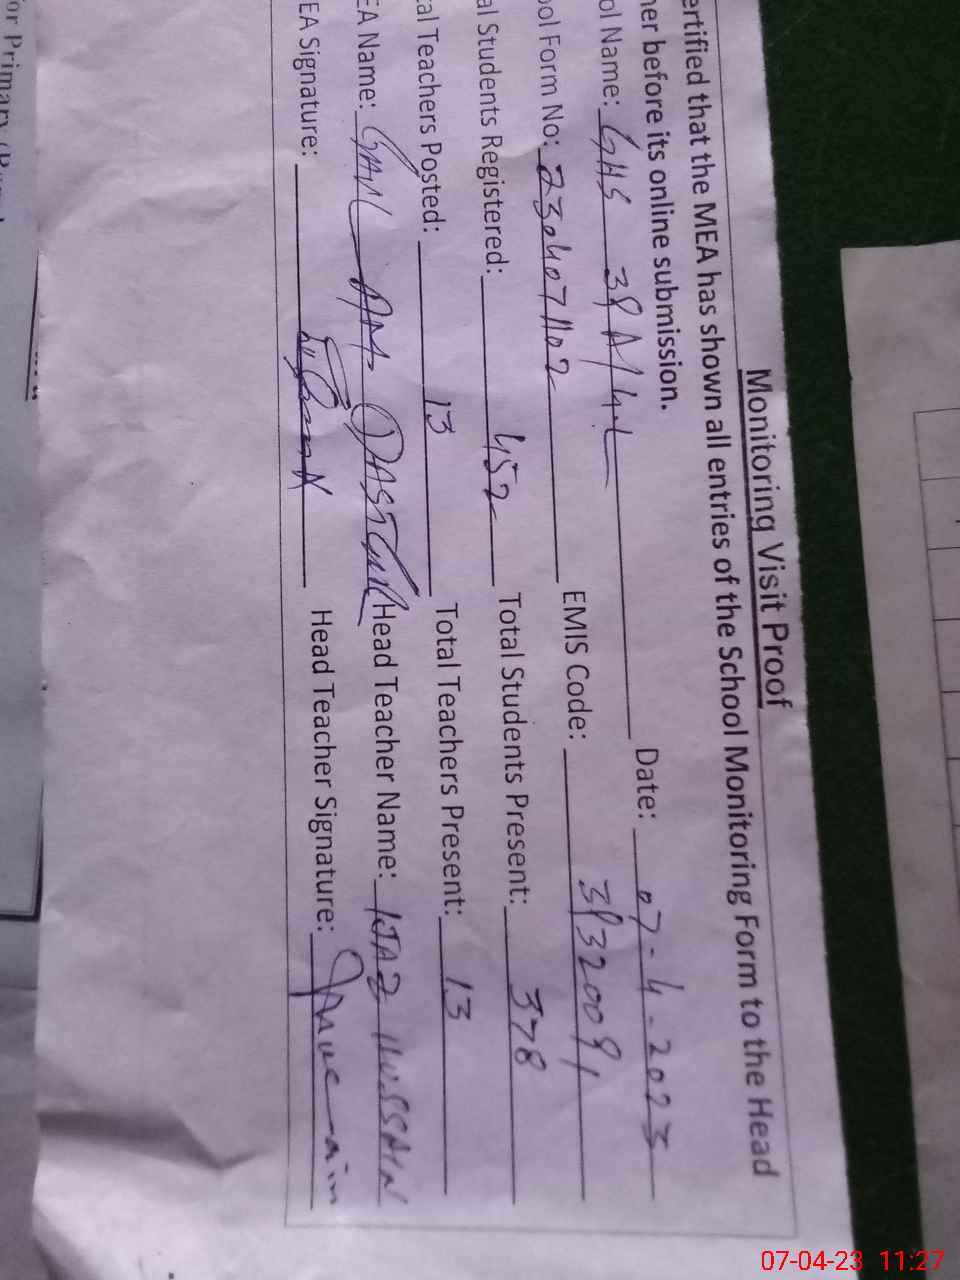 Monitoring Visit Proof
ertified that the MEA has shown all entries of the School Monitoring Form to the Head
her before its online submission.
ol Name: GHS 38 A/4.L Date: 07-4-2023
ool Form No: 2304071102 EMIS Code:
al Students Registered: 452 Total Students Present: 378
tal Teachers Posted: 13 Total Teachers Present: 13
EA Name: Head Teacher Name: IJAZ HUSSAIN
EA Signature: Head Teacher Signature:
for Primary
07-04-23 11:27